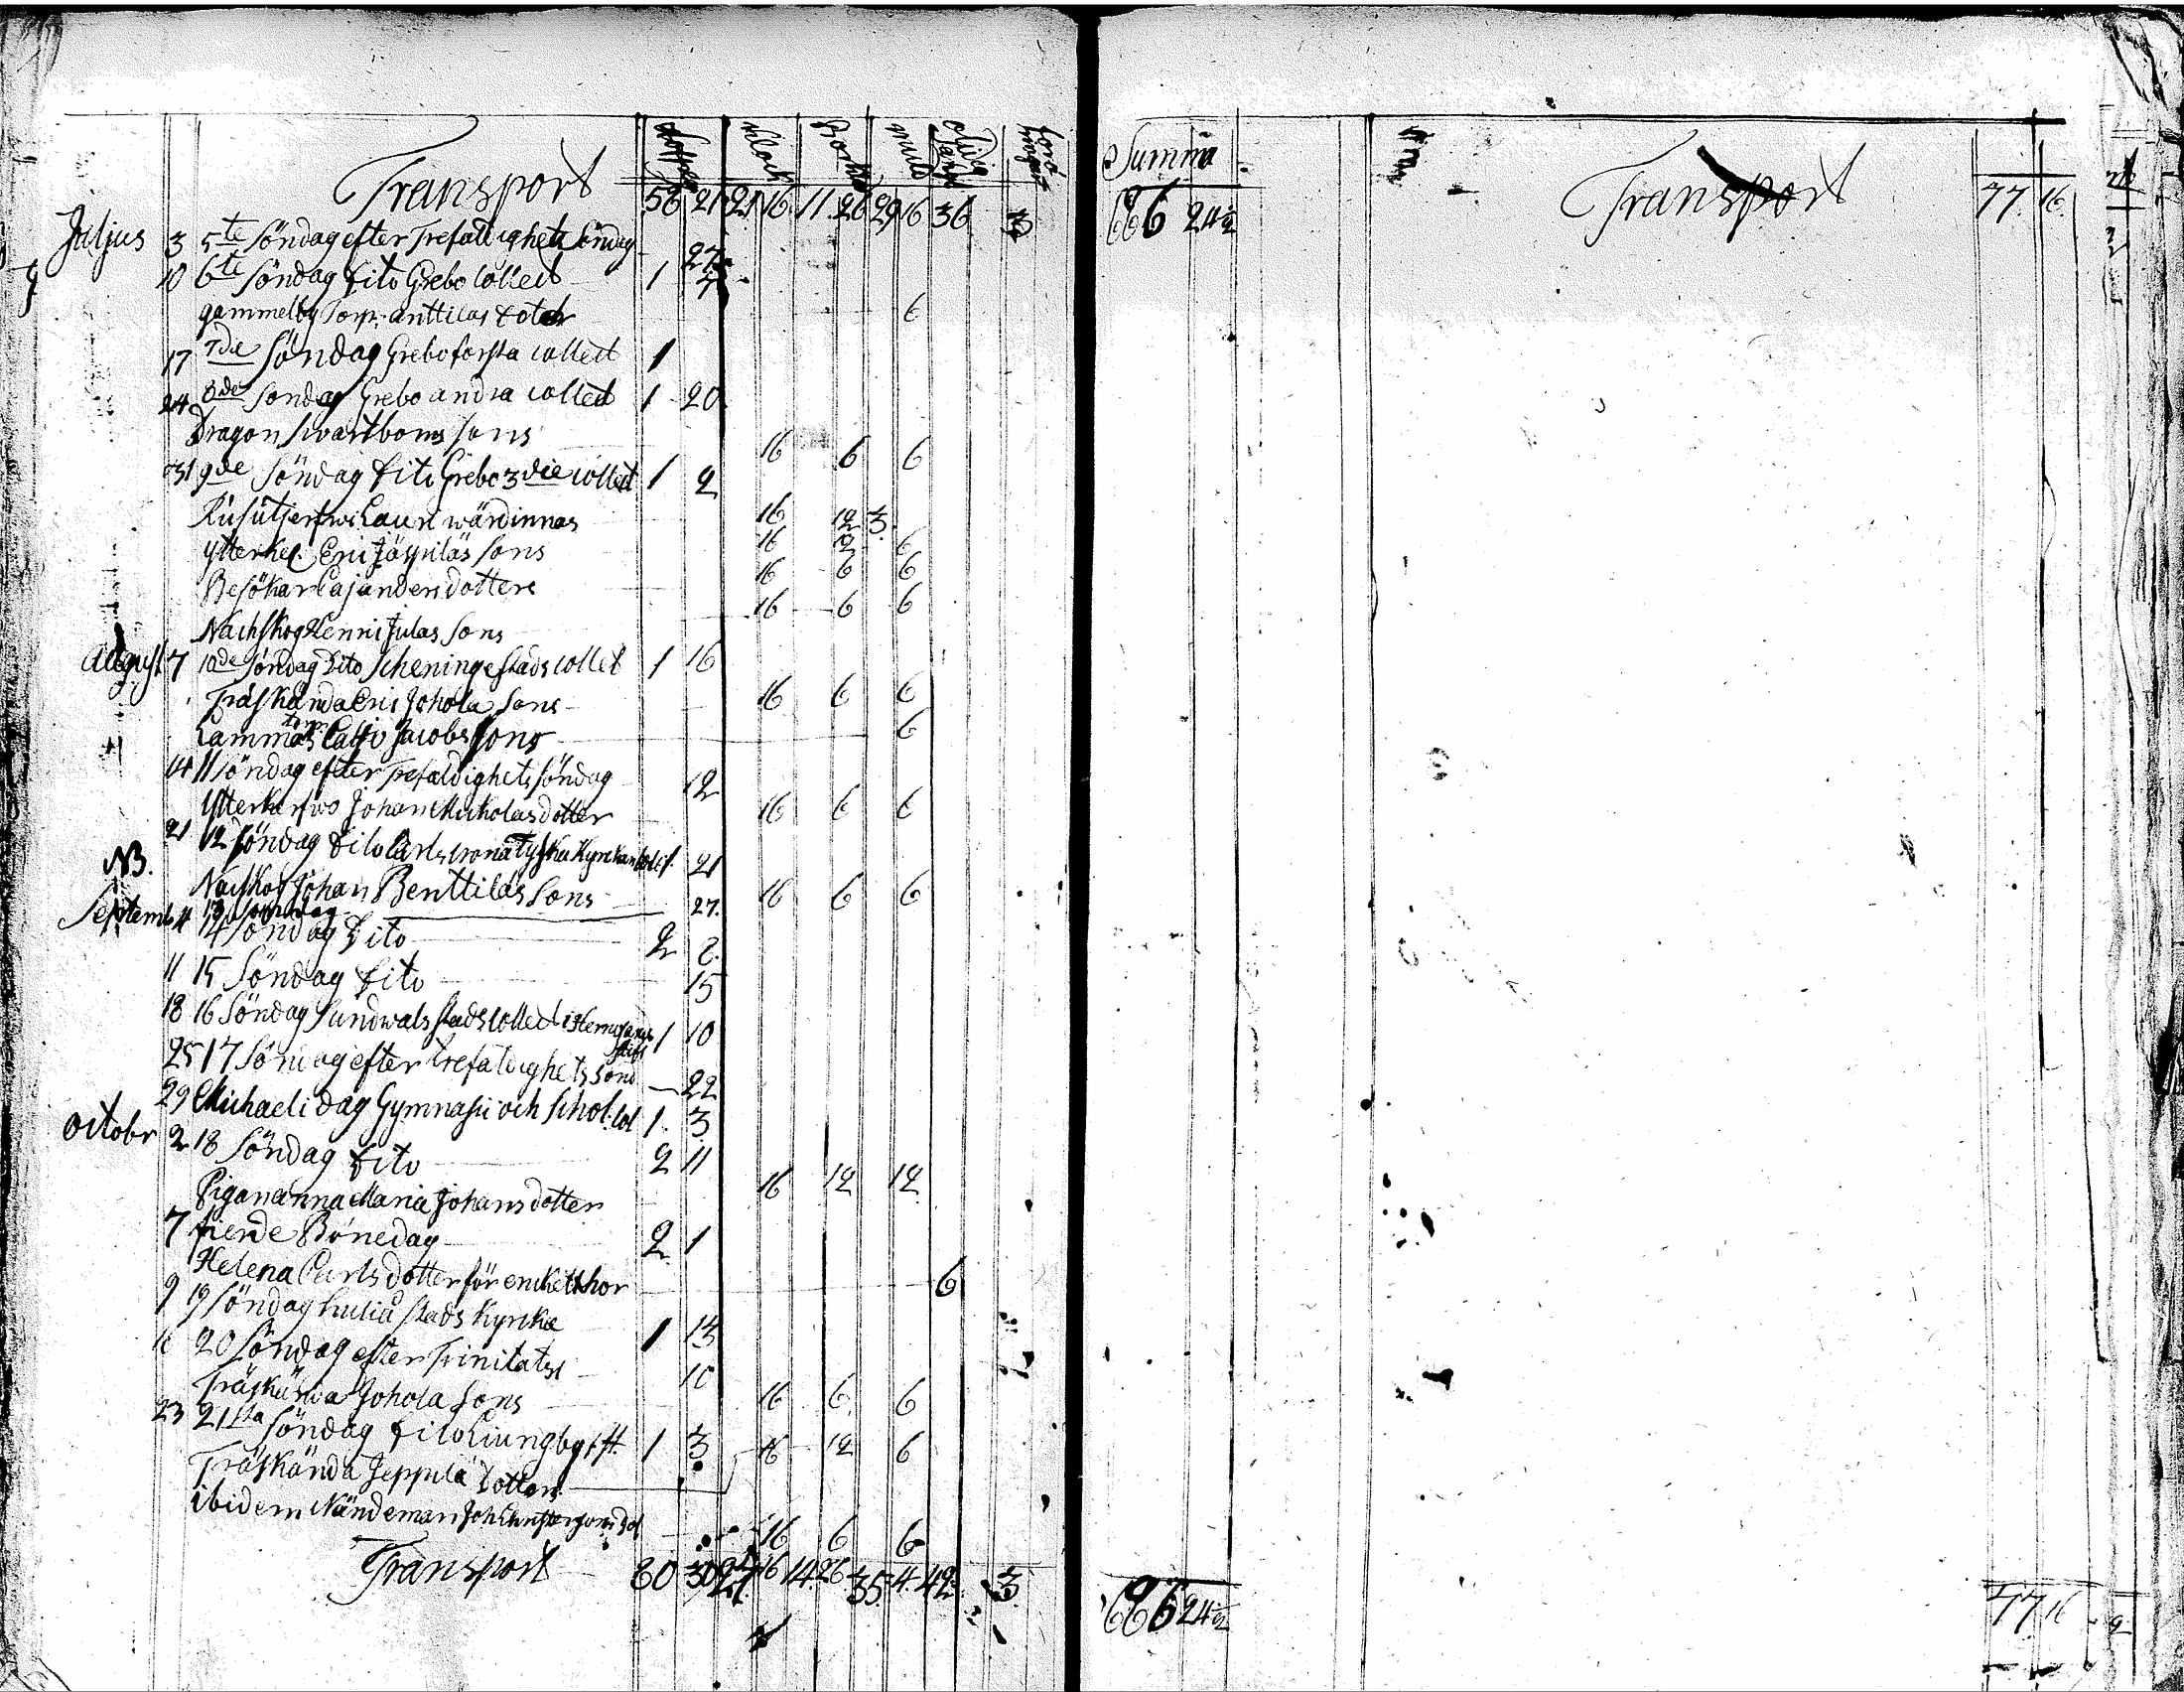 Klock
Summa
Transport 56 21 21 16 11 26 29 16 36
686 24½
Transport 77 16
Julius 3 5te Söndag efter Trefaldighets Söndag 27
10 6te Söndag dito Grebo collect 1 7
gammelby Torp. anttilas doter 6
17 7de Söndag Grebo första collect 1
24 8de Söndag Grebo andra collect 1 20
Dragon Swartboms Sons 16 6 6
31 9de Söndag dito Grebo 3die collect 1 2
Lauri wärdinnas 16 12 3
Ytterker. Eric Jäspiläs Sons 16 12 6
Besökar Cajanders dotters 16 6 6
Nachskog Henni Julas Sons 16 6 6
August 7 10de Söndag dito Scheninge stads collet 1 16
Träskända Eric Johola Sons 16 6 6
Jacobs Sons 6
14 11 Söndag efter Trefaldighets Söndag 12
Ytterkerfwo Johan Mickolas dotter 16 6 6
21 12 Söndag dito Carlscrona Tyska Kyrckan 21
NB.
Nachskog Johan Benttiläs Sons 16 6 6
13 Söndag 27.
Septemb 4 14 Söndag dito 2 2
11 15 Söndag dito 15
18 16 Söndag Sundwals stads collect i Hernösands stift 1 10
25 17 Söndag efter trefaldighets Sönd 22
29 Michaeli dag Gymnasii och Schol. col 1. 3
Octobr 2 18 Söndag dito 2 11
Pigan anna Maria Johans dotter 16 12 12
7 fierde Bönedag 2 1
Helena Carls dotter för enckelt hor 6
9 19 Söndag Luleå stads Kyrcka 1 13
16 20 Söndag efter Trinitatis 10
Träskända Johola Sons 16 6 6
23 21sta Söndag dito Liungby 1 3
Träskända Jeppilä dotter 16 12 6
ibidem Nändeman 16 6 6
Transport 60 30 24 16 14 26 35 4 42 3
686 24½
77 16